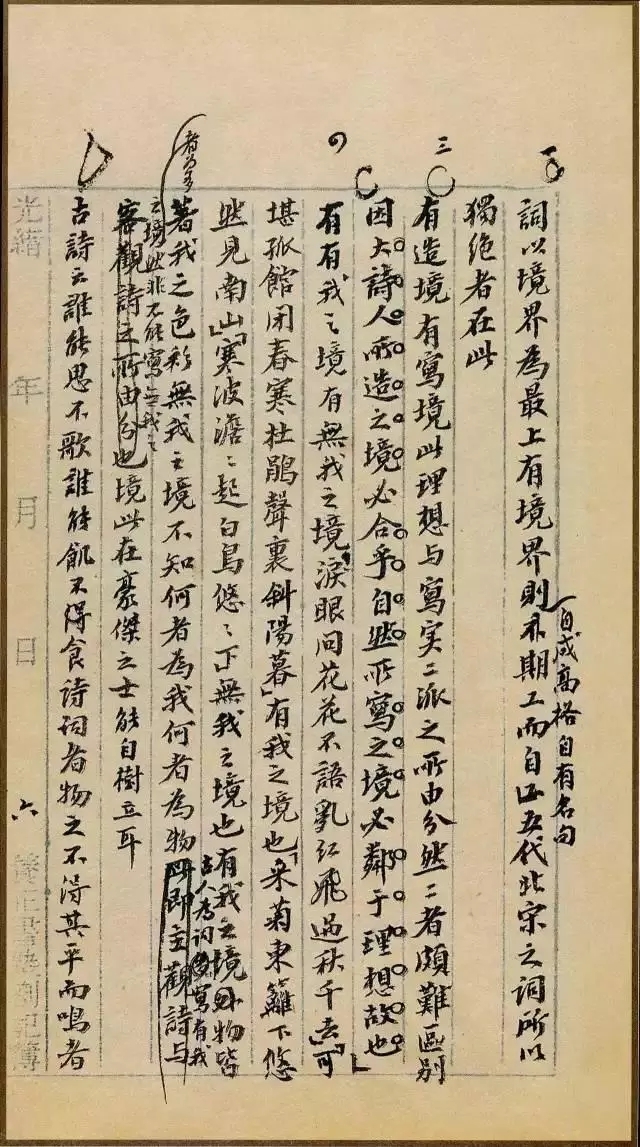 一
詞以境界為最上有境界則不期工而自工五代北宋之詞所以
自成高格自有名句
獨絕者在此
三
有造境有寫境此理想与寫实二派之所由分然二者頗難區別
因大詩人所造之境必合乎自然所寫之境必鄰于理想故也
有有我之境有無我之境「淚眼問花花不語亂红飛過秋千去」「可
堪孤館闭春寒杜鹃聲裏斜陽暮」有我之境也「采菊東籬下悠
然見南山」「寒波澹〻起白鸟悠〻下」無我之境也有我之境物皆
著我之色彩無我之境不知何者為我何者為物此即主觀詩与
古人為詞寫有我
者為多
之境然非不能寫無我之
客觀詩之所由分也境此在豪傑之士能自樹立耳
古詩云誰能思不歌誰能飢不得食詩詞者物之不得其平而鳴者
光緒 年 月 日 六